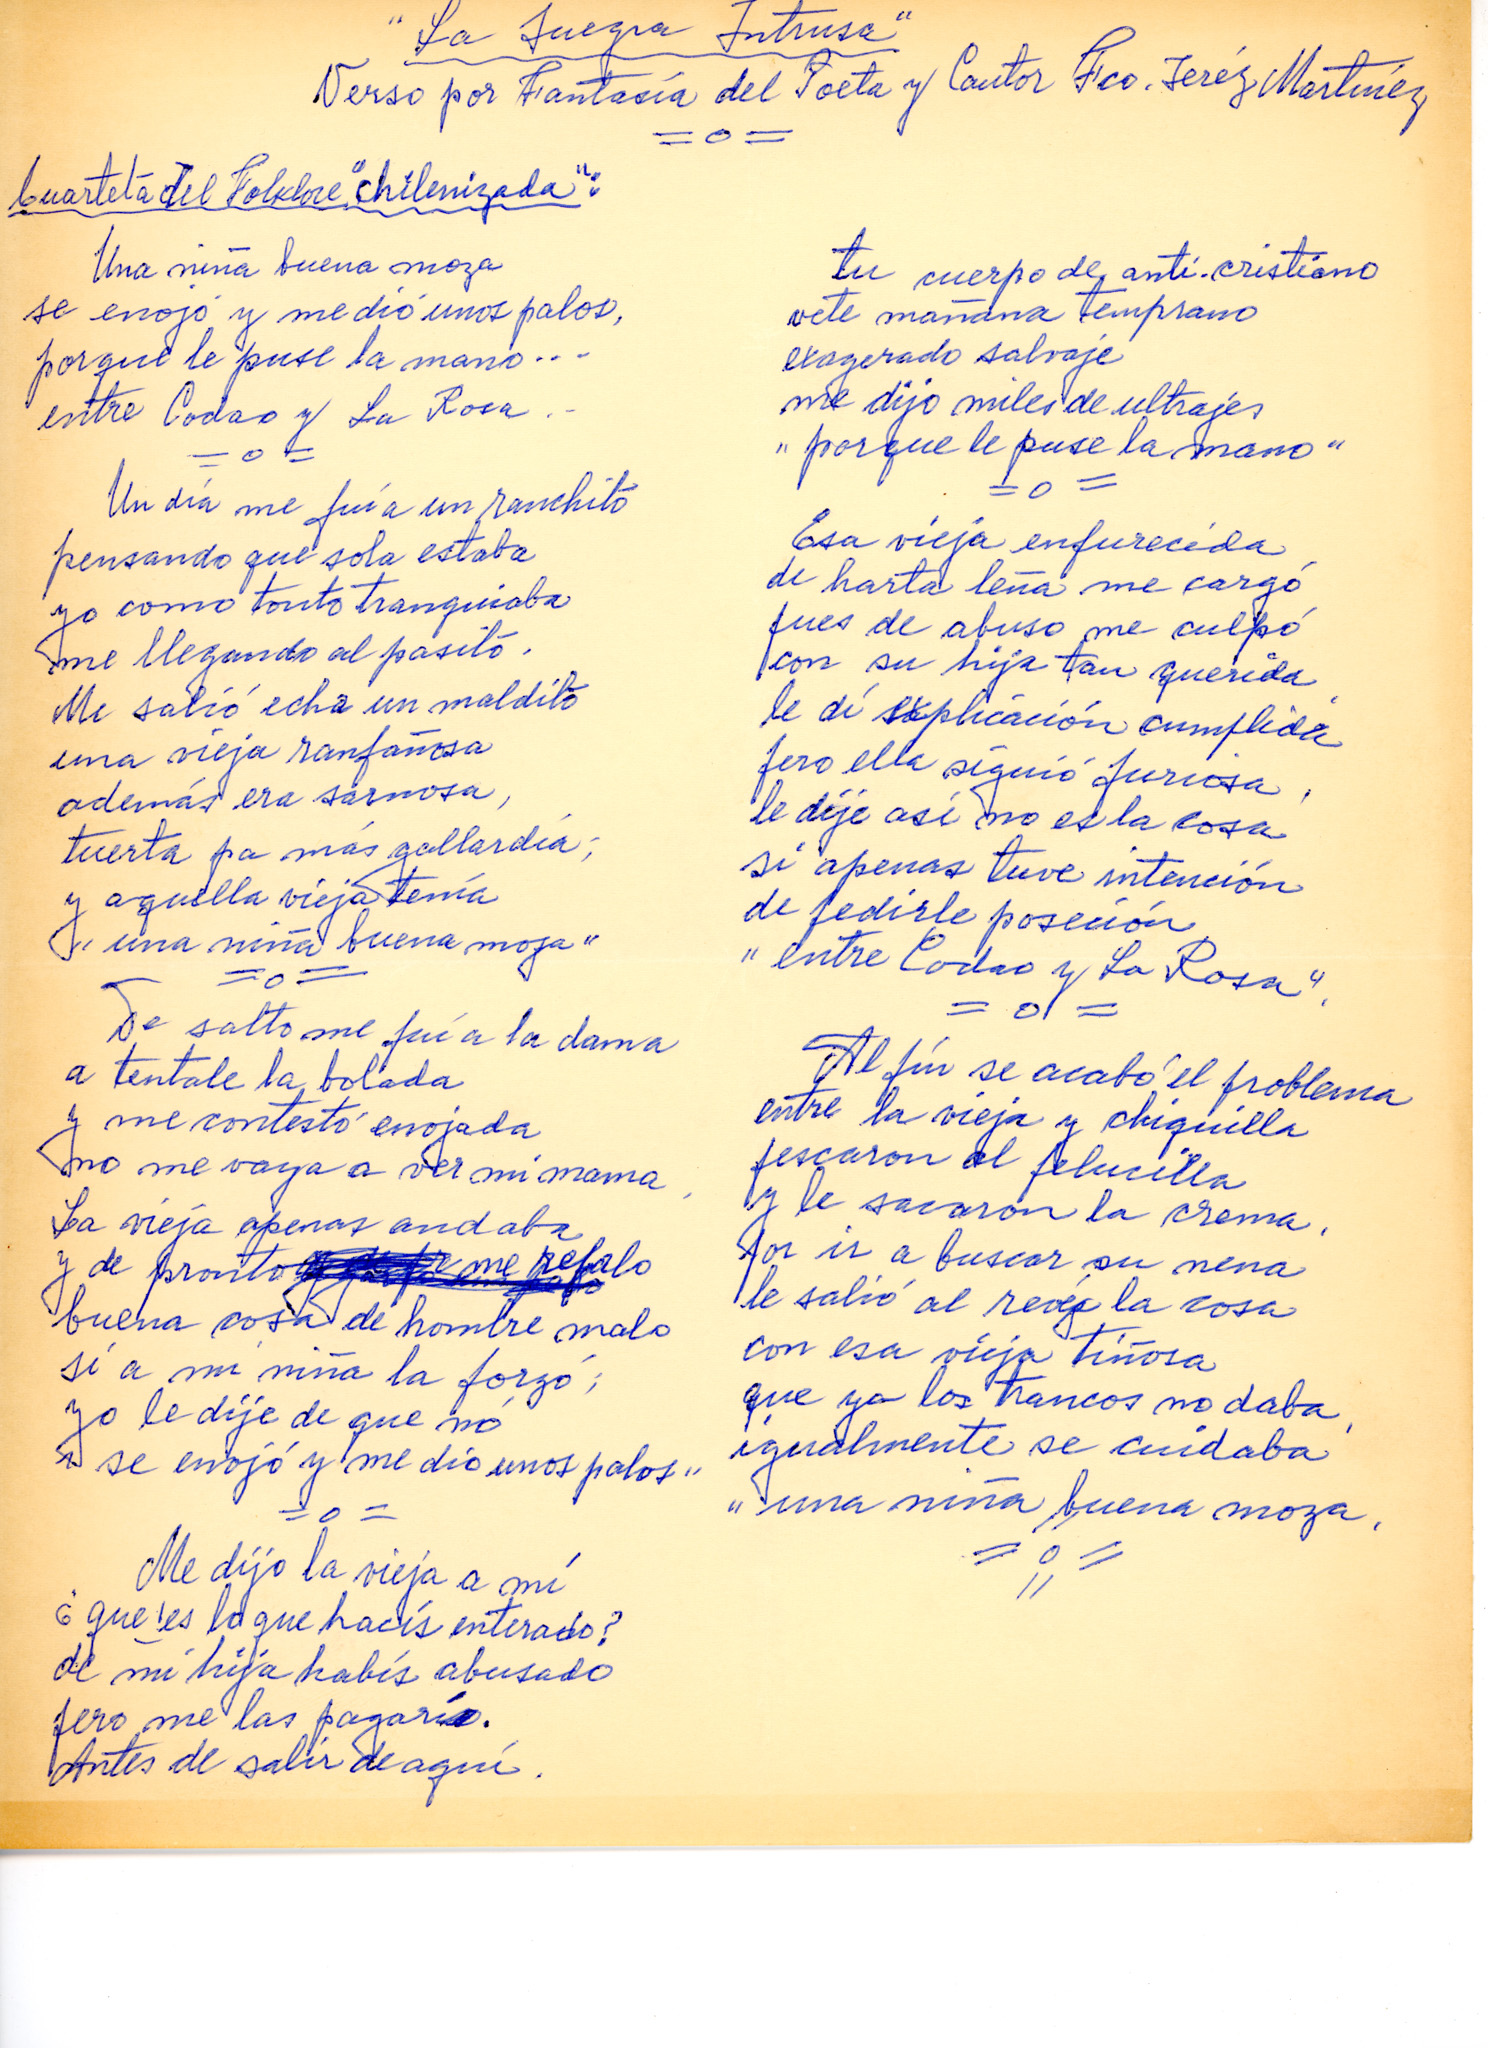 "La Suegra Intrusa"
Verso por Fantasía del Poeta y Cantor Fco. Jeréz Martínez
=o=
Cuarteta del Folklore "chilenizada":
Una niña buena moza
se enojó y me dió unos palos,
porque le puse la mano...
entre Codao y La Rosa..
=o=
Un día me fuí a un ranchito
pensando que sola estaba
yo como tonto tranquiaba
me llegando al pasito.
Me salió echa un maldito
una vieja ranfañosa
además era sarnosa,
tuerta pa más gallardía;
y aquella vieja tenía
"una niña buena moza"
=o=
De salto me fuí a la dama
a tentale la bolada
y me contestó enojada
no me vaya a ver mi mama,
La vieja apenas andaba
y de pronto me refalo
buena cosa de hombre malo
sí a mi niña la forzó;
yo le dije de que nó
"se enojó y me dio unos palos"
=o=
Me dijo la vieja a mí
¿que es lo que hacís enterado?
de mi hija habís abusado
pero me las pagarís.
Antes de salir de aquí.
tu cuerpo de anti-cristiano
vete mañana temprano
exagerado salvaje
me dijo miles de ultrajes
"porque le puse la mano"
=o=
Esa vieja enfurecida
de harta leña me cargó
pues de abuso me culpó
con su hija tan querida,
le dí explicación cumplida
pero ella siguió furiosa,
le dije así no es la cosa
si apenas tuve intención
de pedirle poseción
"entre Codao y La Rosa".
=o=
Al fín se acabó el problema
entre la vieja y chiquilla
pescaron al pelucilla
y le sacaron la crema.
Por ir a buscar su nena
le salió al revéz la cosa
con esa vieja tiñosa
que ya los trancos no daba,
igualmente se cuidaba
"una niña buena moza.
=o=